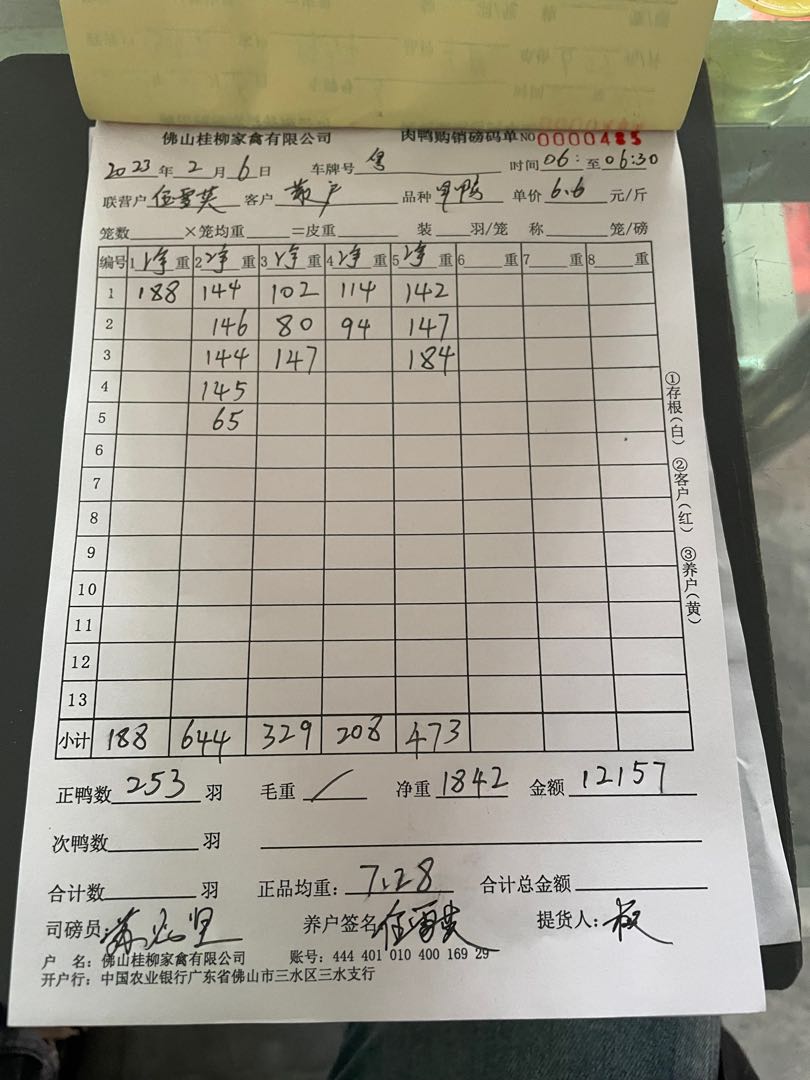 佛山桂柳家禽有限公司 肉鸭购销磅码单 NO 0000485
2023 年 2 月 6 日 车牌号 时间 06: 至 06:30
联营户 伍雪英 客户 散户 品种 单价 6.6 元/斤
笼数 ×笼均重 =皮重 装 羽/笼 称 笼/磅
编号 1 净 重 2 净 重 3 净 重 4 净 重 5 净 重 6 重 7 重 8 重
1 188 144 102 114 142
2 146 80 94 147
3 144 147 184
4 145
5 65
6
7
8
9
10
11
12
13
小计 188 644 329 208 473
正鸭数 253 羽 毛重 / 净重 1842 金额 12157
次鸭数 羽
合计数 羽 正品均重: 7.28 合计总金额
司磅员: 养户签名 伍雪英 提货人:
户 名: 佛山桂柳家禽有限公司 账号: 444 401 010 400 169 29
开户行: 中国农业银行广东省佛山市三水区三水支行
①存根(白) ②客户(红) ③养户(黄)